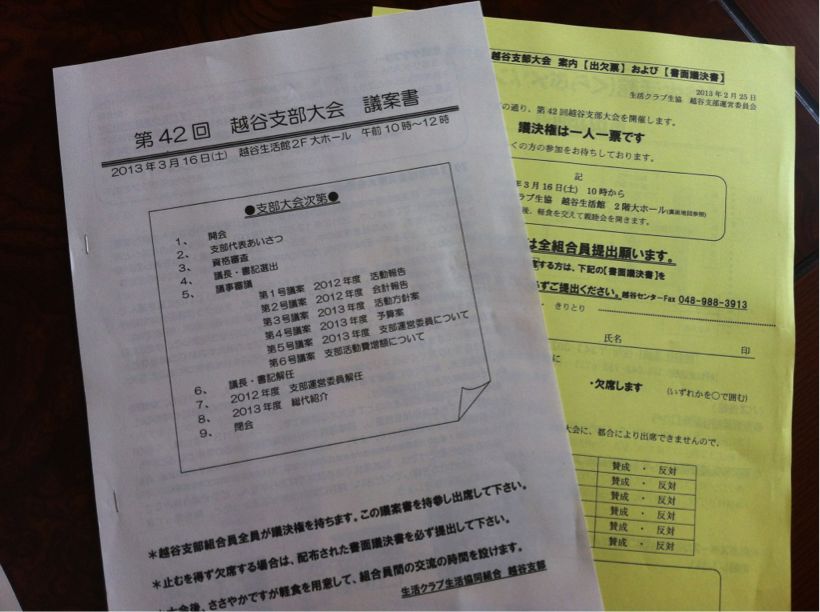 第42回 越谷支部大会 議案書
2013年3月16日(土) 越谷生活館2F大ホール 午前10時～12時
●支部大会次第●
1、 開会
2、 支部代表あいさつ
3、 資格審査
4、 議長・書記選出
5、 議事審議
第1号議案 2012年度 活動報告
第2号議案 2012年度 会計報告
第3号議案 2013年度 活動方針案
第4号議案 2013年度 予算案
第5号議案 2013年度 支部運営委員について
第6号議案 支部活動費増額について
6、 議長・書記解任
7、 2012年度 支部運営委員解任
8、 2013年度 総代紹介
9、 閉会
＊越谷支部組合員全員が議決権を持ちます。この議案書を持参し出席して下さい。
＊止むを得ず欠席する場合は、配布された書面議決書を必ず提出して下さい。
大会後、ささやかですが軽食を用意して、組合員間の交流の時間を設けます。
生活クラブ生活協同組合 越谷支部
越谷支部大会 案内【出欠票】および【書面議決書】
2013年2月25日
生活クラブ生協 越谷支部運営委員会
の通り、第42回越谷支部大会を開催します。
議決権は一人一票です
くの方の参加をお待ちしております。
記
年3月16日(土) 10時から
ラブ生協 越谷生活館 2階大ホール(裏面地図参照)
後、軽食を交えて親睦会を開きます。
は全組合員提出願います。
席する方は、下記の【書面議決書】を
ずご提出ください。越谷センターFax 048-988-3913
・ きりとり ・
氏名 印
に
・欠席します (いずれかを○で囲む)
大会に、都合により出席できませんので、
賛成 ・ 反対
賛成 ・ 反対
賛成 ・ 反対
賛成 ・ 反対
賛成 ・ 反対
賛成 ・ 反対